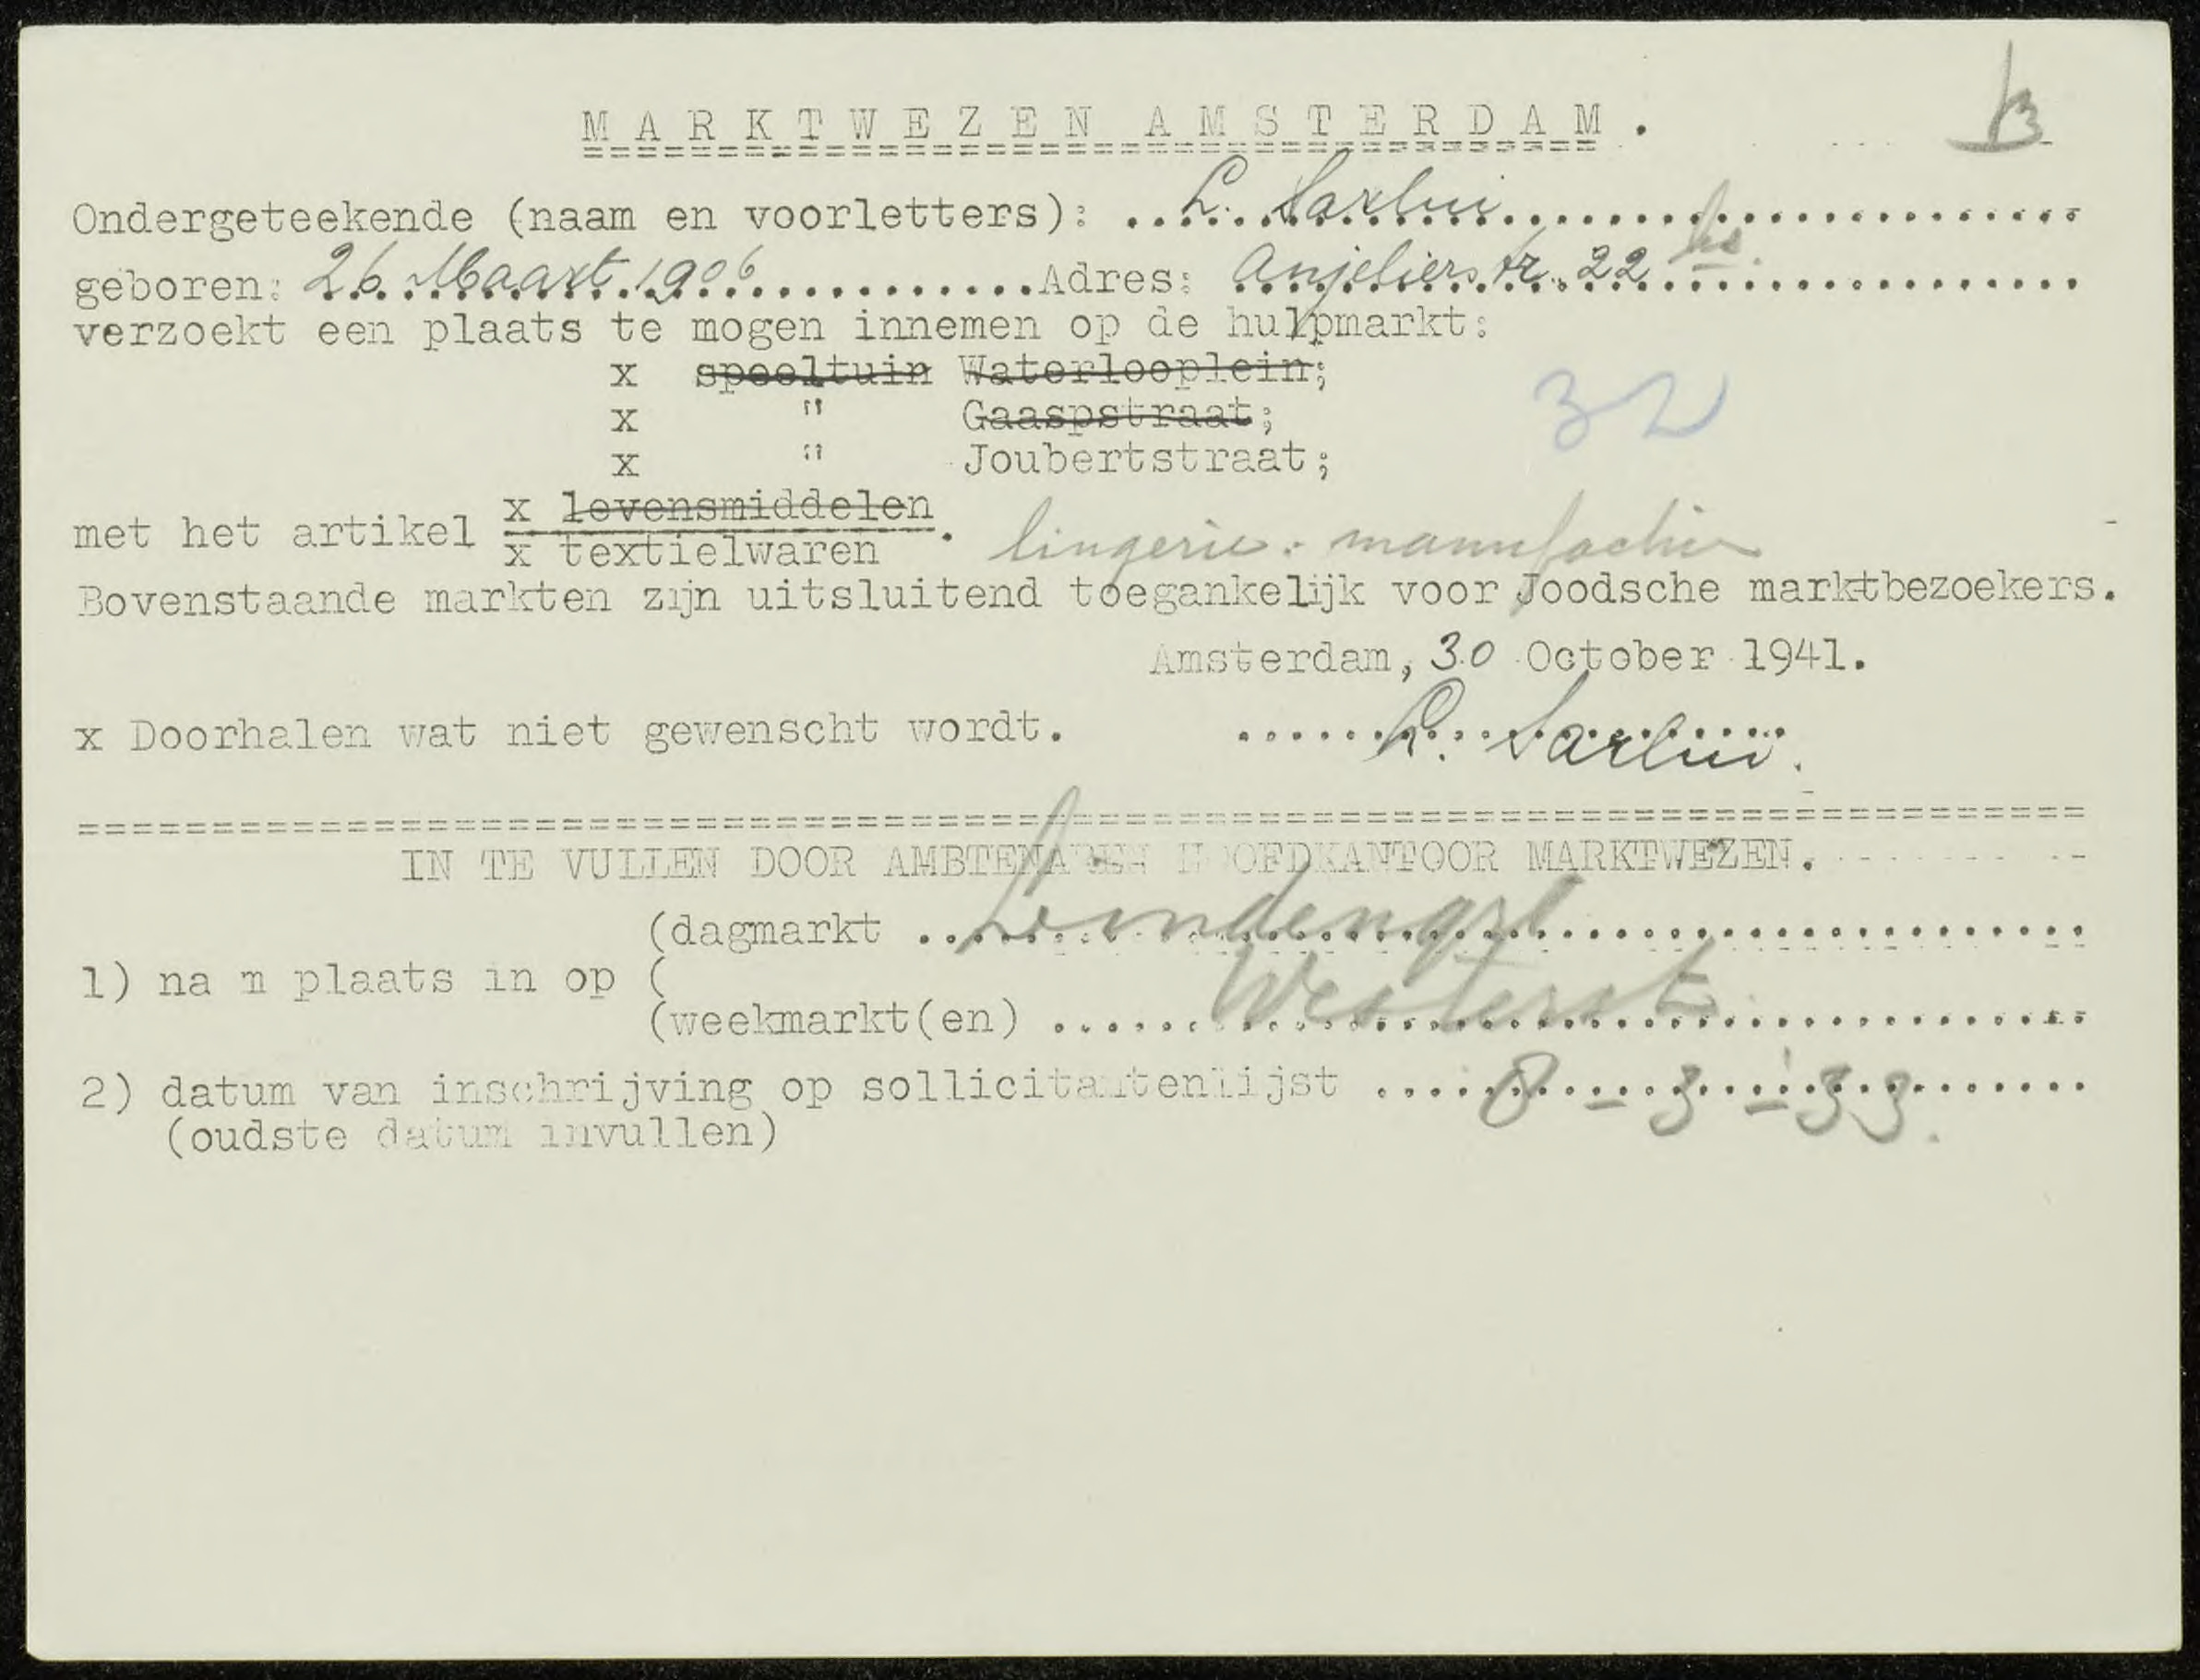 MARKTWEZEN AMSTERDAM.
Ondergeteekende (naam en voorletters): L. Sarlui
geboren: 26 Maart 1906 Adres: Anjelierstr. 22 hs.
verzoekt een plaats te mogen innemen op de hulpmarkt:
x speeltuin Waterlooplein;
x " Gaaspstraat;
x " Joubertstraat;
32
x levensmiddelen
met het artikel
x textielwaren. lingerie. manufacturen
Bovenstaande markten zijn uitsluitend toegankelijk voor Joodsche marktbezoekers.
Amsterdam, 30 October 1941.
x Doorhalen wat niet gewenscht wordt. L. Sarlui.
IN TE VULLEN DOOR AMBTENAREN HOOFDKANTOOR MARKTWEZEN.
(dagmarkt Lindengr
1) na m plaats in op (
(weekmarkt(en) Westerst
2) datum van inschrijving op sollicitantenlijst 8-3-33.
(oudste datum invullen)